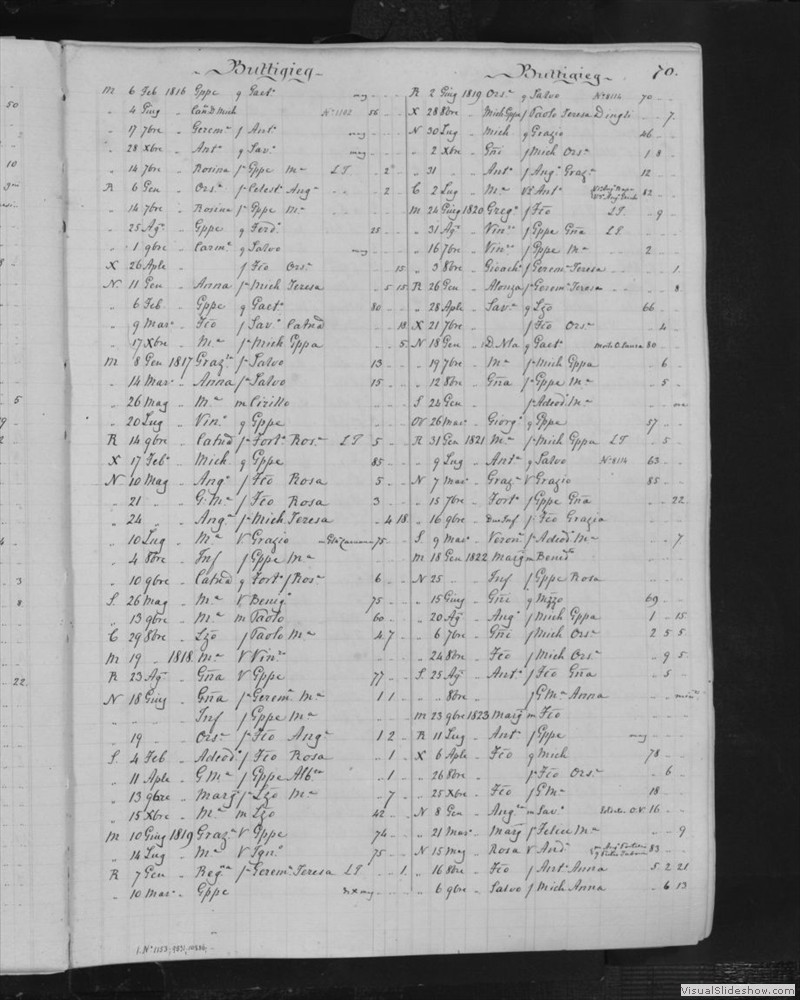 Buttigieg
M 6 Feb 1816 Gppe q Gaet.ᵃ may
„ 4 Giug „ Mich Nº 1102 56
„ 17 7bre „ Gerem.ᵃ f Ant.ᵃ may
„ 28 Xbre „ Ant.ᵃ q Sav.ᵃ may
„ 14 7bre „ Rosina f Gppe M.ᵃ LT 2
R 6 Gen „ Ors.ᵃ f Celest. Ang.ᵃ 2
„ 14 7bre „ Rosina f Gppe M.ᵃ
„ 25 Ag „ Gppe q Ferd.ᵒ 25
„ 1 9bre „ Carm.ᵃ q Salvo may
X 26 Aple „ f Fco Ors.ᵃ 15
N 11 Gen „ Anna f Mich Teresa 5 15
„ 6 Feb „ Gppe q Gaet.ᵃ 80
„ 9 Mar. „ Fco f Sav.ᵃ Catnd 18
„ 17 Xbre „ M.ᵃ f Mich Gppa 5
M 8 Gen 1817 Graz.ᵃ f Salvo 13
„ 14 Mar. „ Anna f Salvo 15
„ 26 Mag „ M.ᵃ m Cirillo
„ 20 Lug „ Vin.ᵒ q Gppe
R 14 9bre „ Catnd f Fort.ᵃ Ros.ᵃ LT 5
X 17 Feb. „ Mich q Gppe 85
N 10 Mag „ Ang.ᵃ f Fco Rosa 5
„ 21 „ „ G. M.ᵃ f Fco Rosa 3
„ 24 „ „ Ang.ᵃ f Mich Teresa 4 18
„ 10 Lug „ M.ᵃ V Grazio 75
„ 4 8bre „ Inf f Gppe M.ᵃ
„ 10 9bre „ Catnd q Fort. f Ros.ᵃ 6
S 26 Mag „ M.ᵃ V Benig.ᵒ 75
„ 13 9bre „ M.ᵃ m Paolo 60
C 29 8bre „ Lzo f Paolo M.ᵃ 4 7
M 19 „ 1818 M.ᵃ V Vin.ᵒ
R 23 Ag „ Gña V Gppe 77
N 18 Giug „ Gña f Gerem. M.ᵃ 1 1
„ „ „ Inf f Gppe M.ᵃ
„ 19 „ „ Ors.ᵃ f Fco Ang.ᵃ 1 2
S 4 Feb „ Adeod. f Fco Rosa 1
„ 11 Aple „ G. M.ᵃ f Gppe 1
„ 13 9bre „ Marg f Lzo M.ᵃ 7
„ 15 Xbre „ M.ᵃ m Lzo 42
M 10 Giug 1819 Graz.ᵃ V Gppe 74
„ 14 Lug „ M.ᵃ V Ign.ᵒ 75
R 7 Gen „ Reg.ᵃ f Gerem. Teresa LT 1
„ 10 Mar. „ Gppe
1. Nº 1153.
Buttigieg 70.
R 2 Giug 1819 Ors.ᵃ q Salvo Nº 8114 70
X 28 8bre „ Mich Gppa f Paolo Teresa Dingli 7
N 30 Lug „ Mich q Grazio 46
„ 2 Xbre „ Gñi f Mich Ors.ᵃ 1 8
„ 31 „ „ Ant.ᵃ f Ang. Graz.ᵃ 12
C 2 Lug „ M.ᵃ V Ant. 82
M 24 Giug 1820 Greg.ᵒ f Fco LT 9
„ 31 Ag „ Vin.ᵃ f Gppe Gña LT
„ 16 7bre „ Vin.ᵃ f Gppe M.ᵃ 2
„ 3 8bre „ Gioach. f Gerem. Teresa 1
R 26 Gen „ Alonza f Gerem. Teresa 8
„ 28 Aple „ Sav.ᵃ q Lzo 66
X 21 7bre „ f Fco Ors.ᵃ 4
N 18 Gen „ D. Nla q Gaet 80
„ 19 7bre „ M.ᵃ f Mich Gppa 6
„ 12 8bre „ Gña f Gppe M.ᵃ 5
S 28 Gen „ f Adeod. M.ᵃ
OV 26 Mar. „ Giorg. q Gppe 57
R 31 Gen 1821 M.ᵃ f Mich Gppa LT 5
„ 9 Lug „ Ant.ᵃ q Salvo Nº 8114 63
N 7 Mar. „ Graz.ᵃ V Grazio 85
„ 15 7bre „ Fort.ᵃ f Gppe Gña 22
„ 16 9bre „ Due Inf f Fco Grazia
S 9 Mar. „ Veron. f Adeod. M.ᵃ 7
M 18 Gen 1822 Marg m Bened.
N 25 „ „ Inf f Gppe Rosa
„ 15 Giug „ Gñi q Mzzo 69
„ 20 Ag „ Ang.ᵒ f Mich Gppa 1 15
„ 6 7bre „ Gñi f Mich Ors.ᵃ 2 5 5
„ 24 8bre „ Fco f Mich Ors.ᵃ 9 5
S 25 Ag „ Ant.ᵃ f Fco Gña 5
„ „ 8bre „ f G. M.ᵃ Anna
M 23 9bre 1823 Marg m Fco
R 11 Lug „ Ant. f Gppe may
X 6 Aple „ Fco q Mich 78
„ 26 8bre „ f Fco Ors.ᵃ 6
„ 25 Xbre „ Fco f G. M.ᵃ 18
N 8 Gen „ Ang.ᵃ m Sav.ᵃ O.V. 16
„ 21 Mar. „ Marg f Felice M.ᵃ 9
N 15 Mag „ Rosa V And. 83
„ 16 8bre „ Fco f Ant. Anna 5 2 21
„ 6 9bre „ Salvo f Mich Anna 6 13
VisualSlideshow.com